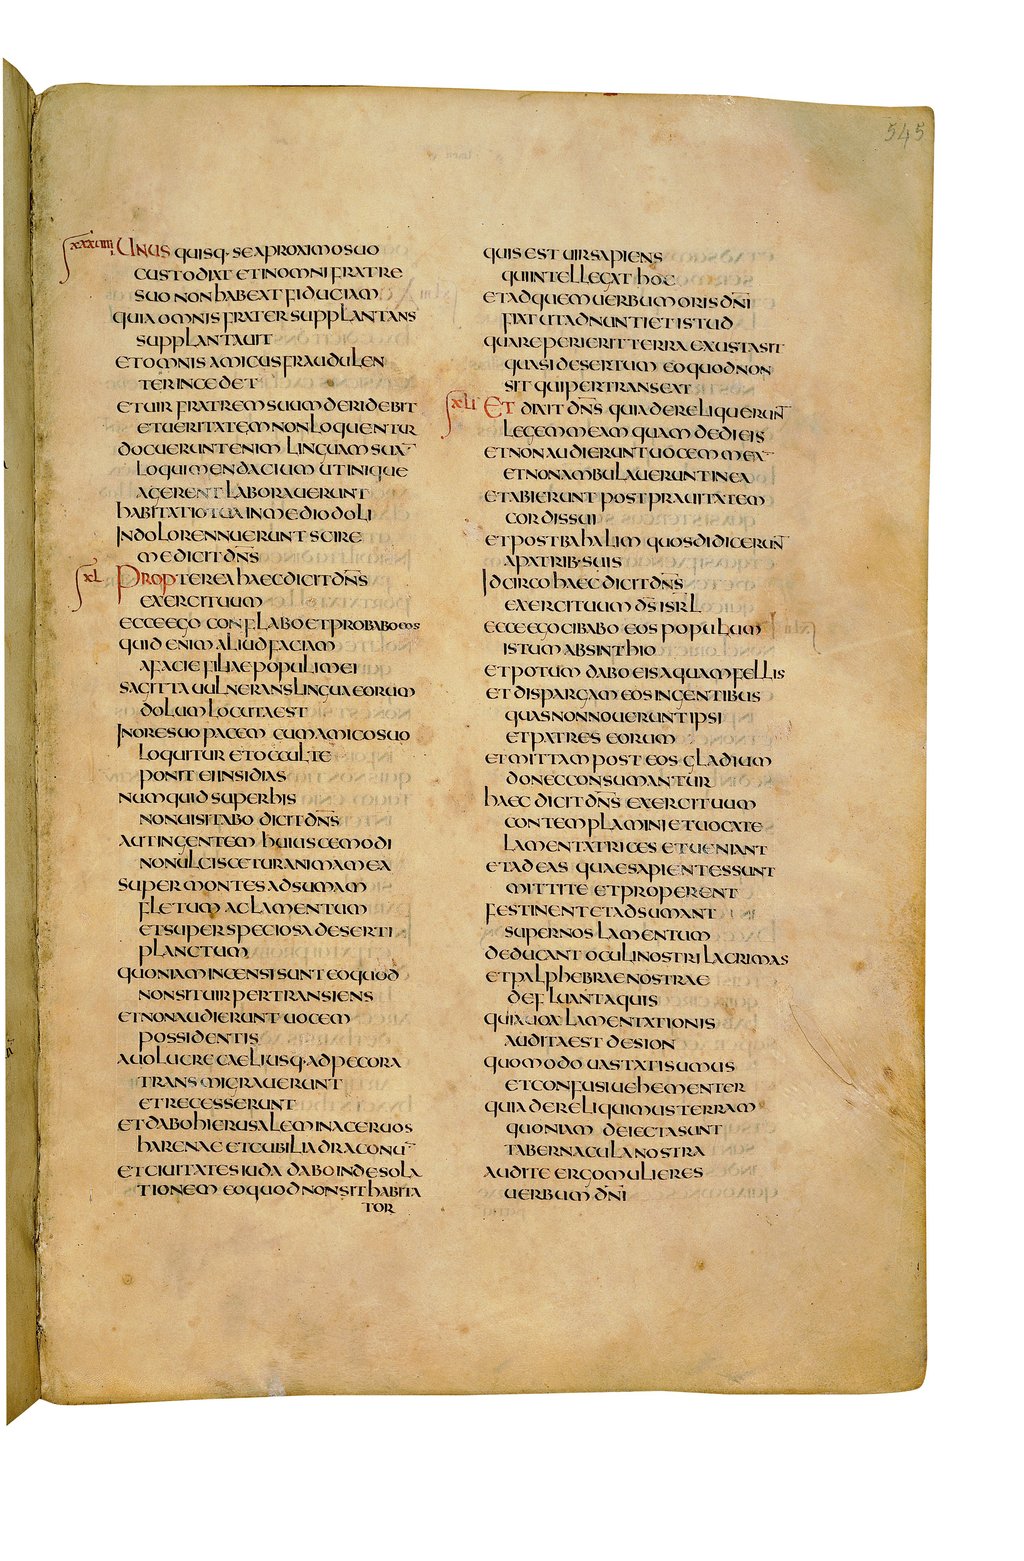 545
xxxviiii Unus quisq· se a proximo suo
custodiat et in omni fratre
suo non habeat fiduciam
quia omnis frater supplantans
supplantauit
et omnis amicus fraudulen
ter incedet
et uir fratrem suum deridebit
et ueritatem non loquentur
docuerunt enim linguam suā
loqui mendacium ut inique
agerent laborauerunt
habitatio tua in medio doli
In dolo rennuerunt scire
me dicit dn̄s
xl Propterea haec dicit dn̄s
exercituum
ecce ego conflabo et probabo eos
quid enim aliud faciam
a facie filiae populi mei
sagitta uulnerans lingua eorum
dolum locuta est
In ore suo pacem cum amico suo
loquitur et occulte
ponit ei insidias
numquid super his
non uisitabo dicit dn̄s
aut in gentem huiuscemodi
non ulciscetur anima mea
super montes adsumam
fletum ac lamentum
et super speciosa deserti
planctum
quoniam incensi sunt eo quod
non sit uir pertransiens
et non audierunt uocem
possidentis
a uolucre caeli usq· ad pecora
transmigrauerunt
et recesserunt
et dabo hierusalem in aceruos
harenae et cubilia draconū
et ciuitates iuda dabo in desola
tionem eo quod non sit habita
tor
quis est uir sapiens
qui intellegat hoc
et ad quem uerbum oris dn̄i
fiat ut adnuntiet istud
quare perierit terra exusta sit
quasi desertum eo quod non
sit qui pertranseat
xli Et dixit dn̄s quia dereliquerun̄
legem meam quam dedi eis
et non audierunt uocem meā
et non ambulauerunt in ea
et abierunt post prauitatem
cordis sui
et post bahalim quos didicerun̄
a patrib· suis
Idcirco haec dicit dn̄s
exercituum ds̄ isrl
ecce ego cibabo eos populum
istum absinthio
et potum dabo eis aquam fellis
et dispargam eos in gentibus
quas non nouerunt ipsi
et patres eorum
et mittam post eos gladium
donec consumantur
haec dicit dn̄s exercituum
contemplamini et uocate
lamentatrices et ueniant
et ad eas quae sapientes sunt
mittite et properent
festinent et adsumant
super nos lamentum
deducant oculi nostri lacrimas
et palphebrae nostrae
defluant aquis
quia uox lamentationis
audita est de sion
quomodo uastati sumus
et confusi uehementer
quia dereliquimus terram
quoniam deiecta sunt
tabernacula nostra
audite ergo mulieres
uerbum dn̄i